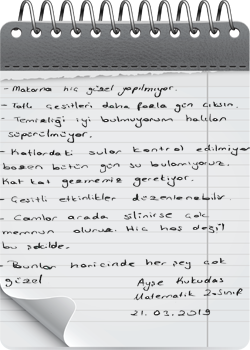 - Makarna hiç güzel yapılmıyor.
- Tatlı çeşitleri daha fazla gün çıksın.
- Temizliği iyi bulmuyorum halıları
süpürülmüyor.
- Katlardaki sular kontrol edilmiyor
bazen bütün gün su bulamıyoruz.
Kat kat gezmemiz gerekiyor.
- Çeşitli etkinlikler düzenlenebilir.
- Camlar arada silinirse çok
memnun oluruz. Hiç hoş değil
bu şekilde.
- Bunlar haricinde her şey çok
güzel
Ayşe Kukudas
Matematik 2. Sınıf
21.03.2019